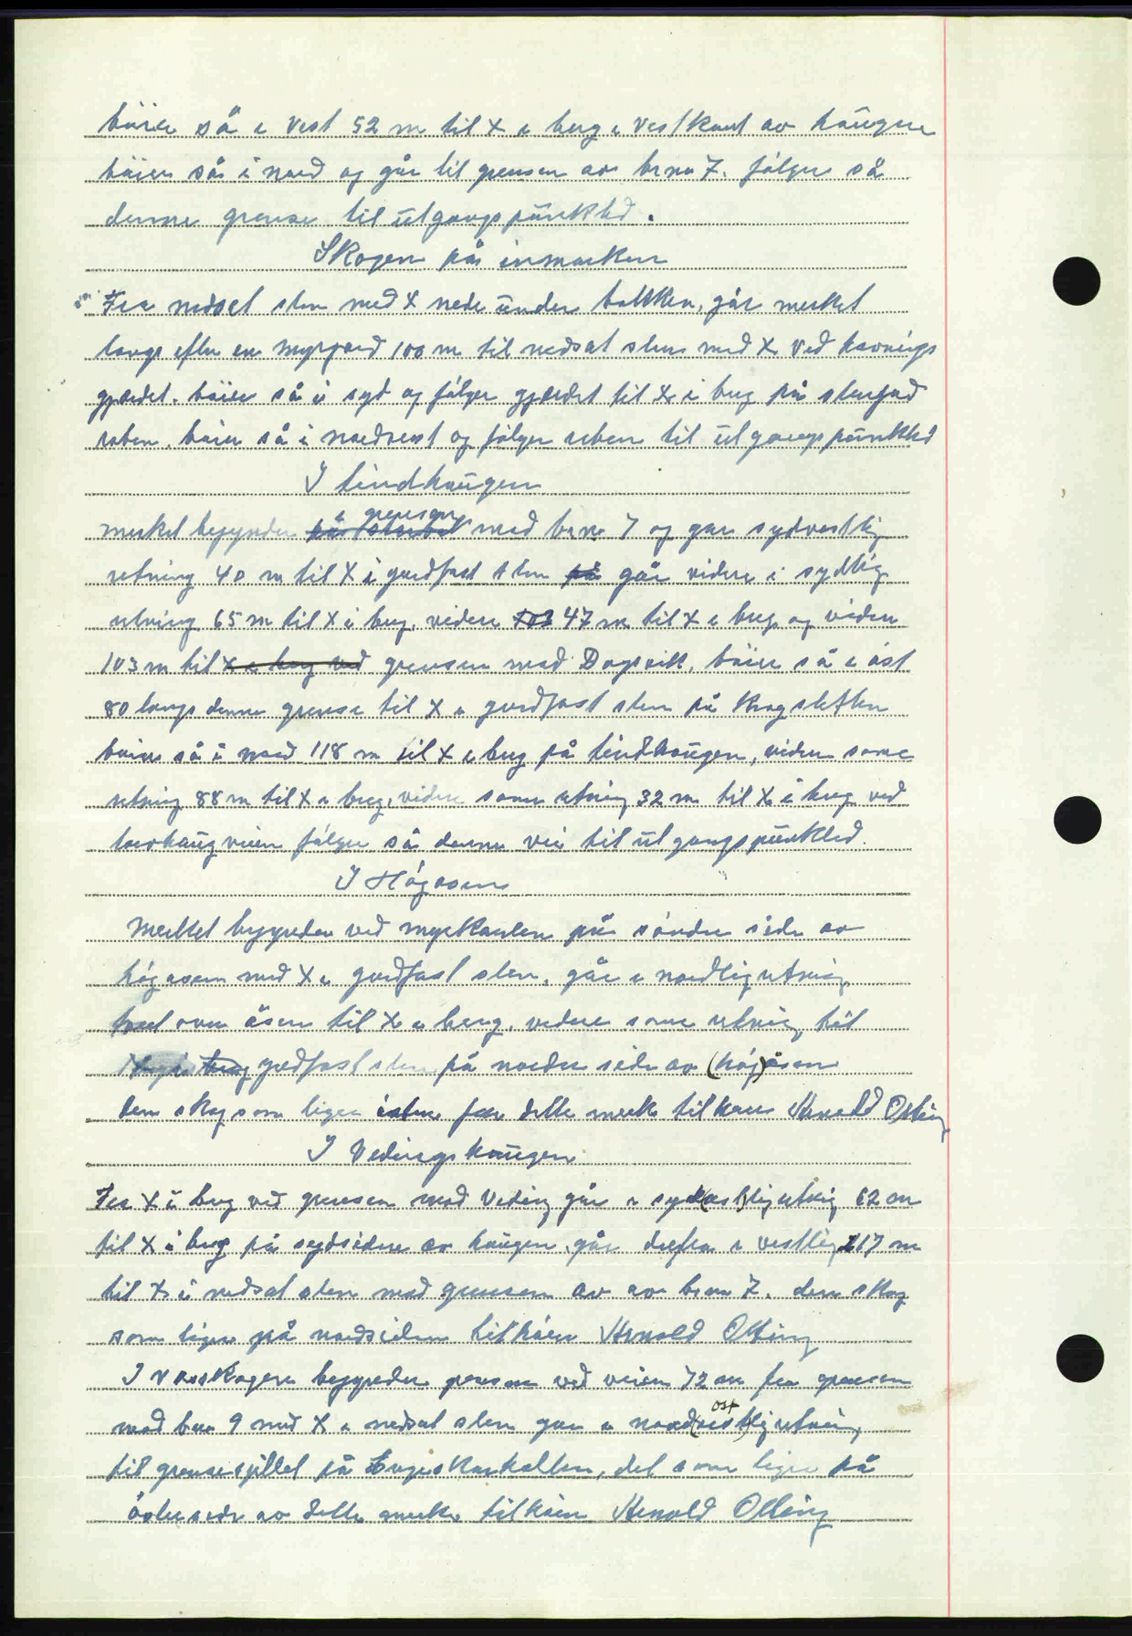 bøier så i vest 52 m til X i berg i vestkant av haugen
bøier så i nord og går til grensen av br no 7. følger så
denne grense til utgangspunktet.
Skogen på inmarken
Fra nedsat sten med X nede under bakken, går merket
langs efter en myrgard 100 m til nedsat sten med X ved havnings
gjerdet. bøier så i syd og følger gjerdet til X i berg på
bøier så i nordvest og følger til utgangspunktet
I Lindhaugen
merket begynder i grensen med br no 7 og gar sydvestlig
retning 40 m til X i jordfast sten går videre i sydlig
retning 65 m til X i berg, videre 47 m til X i berg og viden
103 m til grensen med Dagsvik, bøier så i øst
80 langs denne grense til X i jordfast sten på
bøier så i nord 118 m til X i berg på Lindhaugen, viden same
retning 88 m til X i berg, viden same retning 32 m til X i berg ved
veien følger så denne vei til utgangspunktet.
I Høgåsen
Merket begynder ved myrkanten på søndre side av
høgåsen med X i jordfast sten, går i nordlig retning
over åsen til X i berg, videre same retning til
jordfast sten på nordre side av (høg)åsen
den skog som liger østen for dette merke tilhører Arnold Olting
I Vedingshaugen
Fra X i berg ved grensen med Veding går i sydvestlig retning 62 m
til X i berg på sydsiden av haugen, går derfra i vestlig 217 m
til X i nedsat sten med grensen av av br no 7. den skog
som liger på nordsiden tilhører Arnold Olting
I Vasskogen begynder grensen ved veien 72 m fra grensen
med bno 9 med X i nedsat sten gar i nord(vest)lig retning
ost
til grenseskillet på det som liger på
østre side av dette merke tilhører Arnold Olting